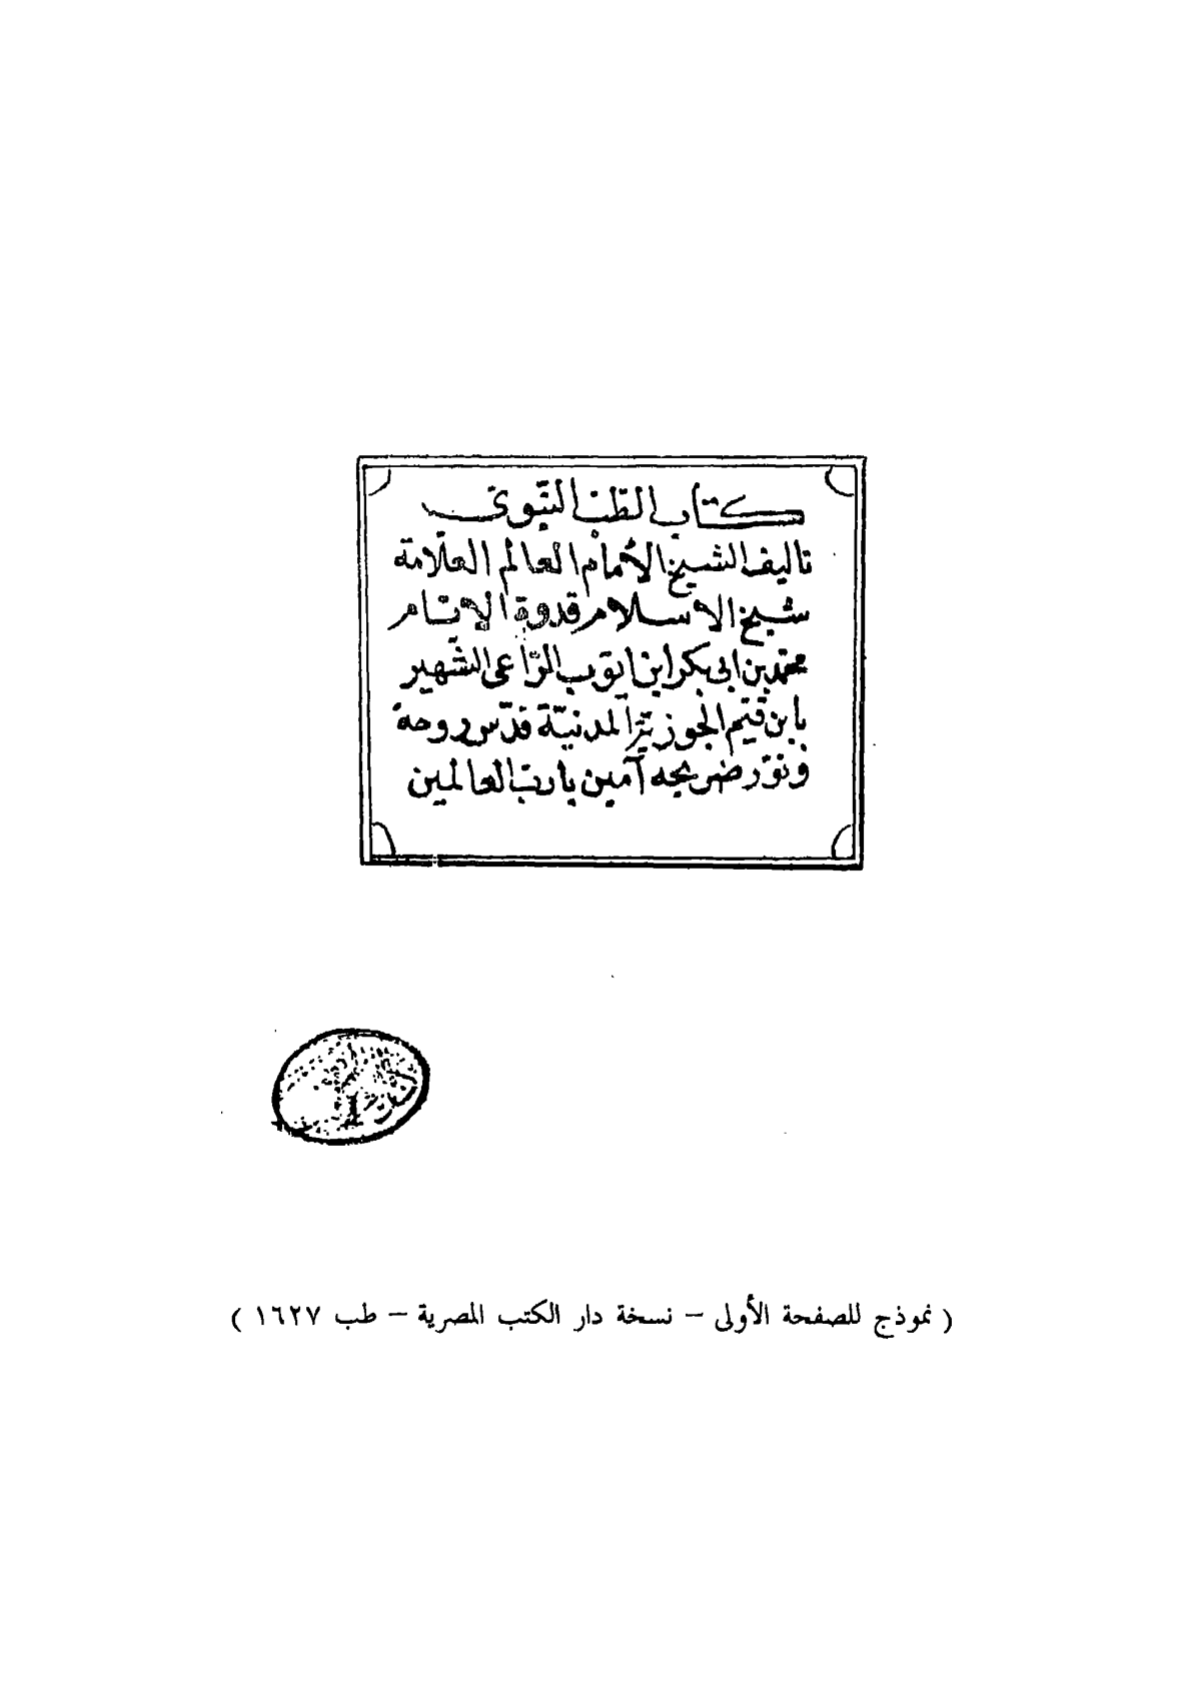 كتاب الطب النبوى
تاليف الشيخ الأمام العالم العلامة
شيخ الاسلام قدوة الانام
محمد بن ابى بكر ابن ايوب الزاعى الشهير
بابن قيم الجوزية المدنية قدس روحه
ونور ضريحه آمين يا رب العالمين
( نموذج للصفحة الأولى – نسخة دار الكتب المصرية – طب ١٦٢٧ )